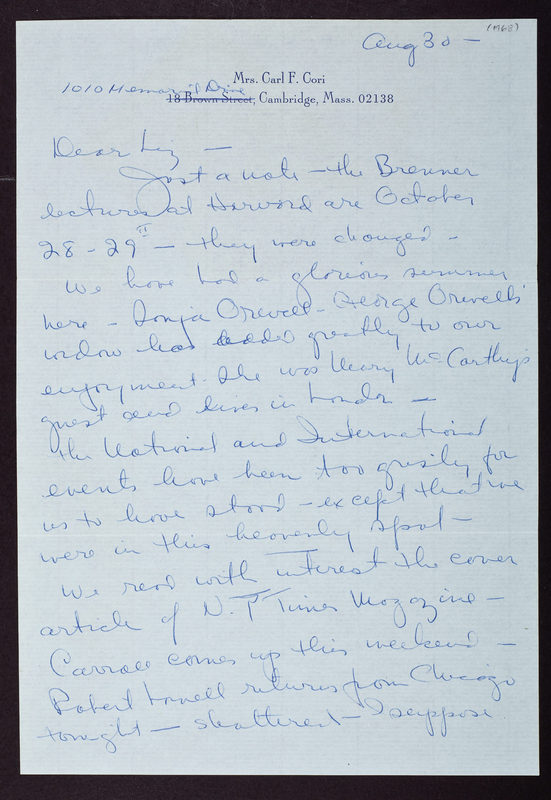 (1968)
Aug 30 —
Mrs. Carl F. Cori
1010 Memorial Drive
18 Brown Street, Cambridge, Mass. 02138
Dear Liz —
Just a note — the Brenner
lectures at Harvard are October
28 - 29th — they were changed —
We have had a glorious summer
here — Sonja Orwell - George Orwell's
widow has added greatly to our
enjoyment. She was Mary McCarthy's
guest and lives in London —
The National and International
events have been too grisly for
us to have stood — except that we
were in this heavenly spot —
We read with interest the cover
article of N.Y Times Magazine —
Carroll comes up this weekend —
Robert Lowell returns from Chicago
tonight — shattered — I suppose